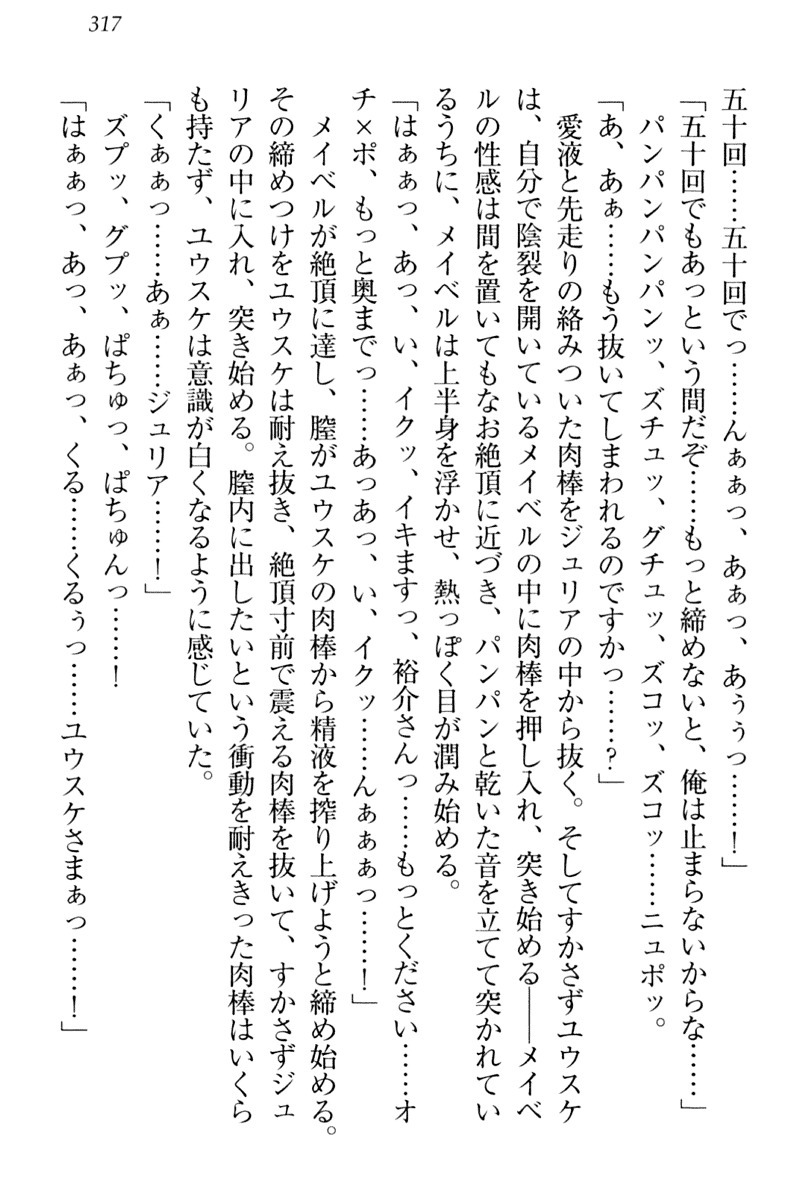 317
五十回……五十回でっ……んぁぁっ、あぁっ、あぅぅっ……！」
「五十回でもあっという間だぞ……もっと締めないと、俺は止まらないからな……」
パンパンパンパンッ、ズチュッ、グチュッ、ズコッ、ズコッ……ニュポッ。
「あ、あぁ……もう抜いてしまわれるのですかっ……？」
愛液と先走りの絡みついた肉棒をジュリアの中から抜く。そしてすかさずユウスケ
は、自分で陰裂を開いているメイベルの中に肉棒を押し入れ、突き始める――メイベ
ルの性感は間を置いてもなお絶頂に近づき、パンパンと乾いた音を立てて突かれてい
るうちに、メイベルは上半身を浮かせ、熱っぽく目が潤み始める。
「はぁぁっ、あっ、い、イクッ、イキますっ、裕介さんっ……もっとください……オ
チ×ポ、もっと奥までっ……あっあっ、い、イクッ……んぁぁぁっ……！」
メイベルが絶頂に達し、膣がユウスケの肉棒から精液を搾り上げようと締め始める。
その締めつけをユウスケは耐え抜き、絶頂寸前で震える肉棒を抜いて、すかさずジュ
リアの中に入れ、突き始める。膣内に出したいという衝動を耐えきった肉棒はいくら
も持たず、ユウスケは意識が白くなるように感じていた。
「くぁぁっ……あぁ……ジュリア……！」
ズプッ、グプッ、ぱちゅっ、ぱちゅんっ……！
「はぁぁっ、あっ、あぁっ、くる……くるぅっ……ユウスケさまぁっ……！」